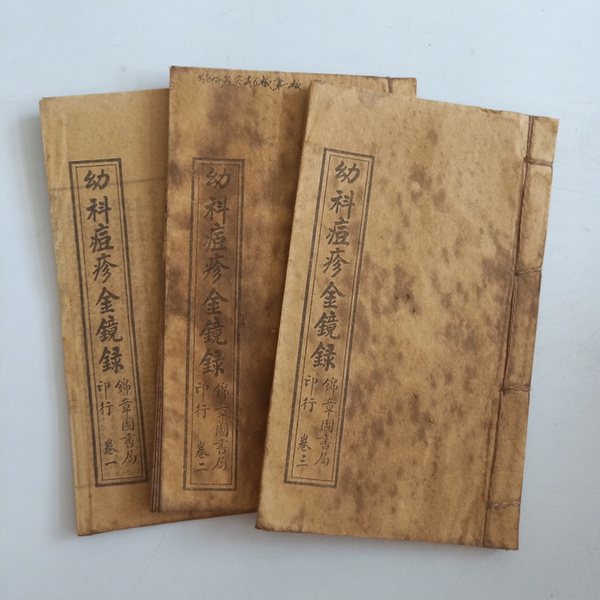 幼科痘疹金鏡録
錦章圖書局
印行 卷一
幼科痘疹金鏡録
錦章圖書局
印行 卷二
幼科痘疹金鏡録
錦章圖書局
印行 卷三